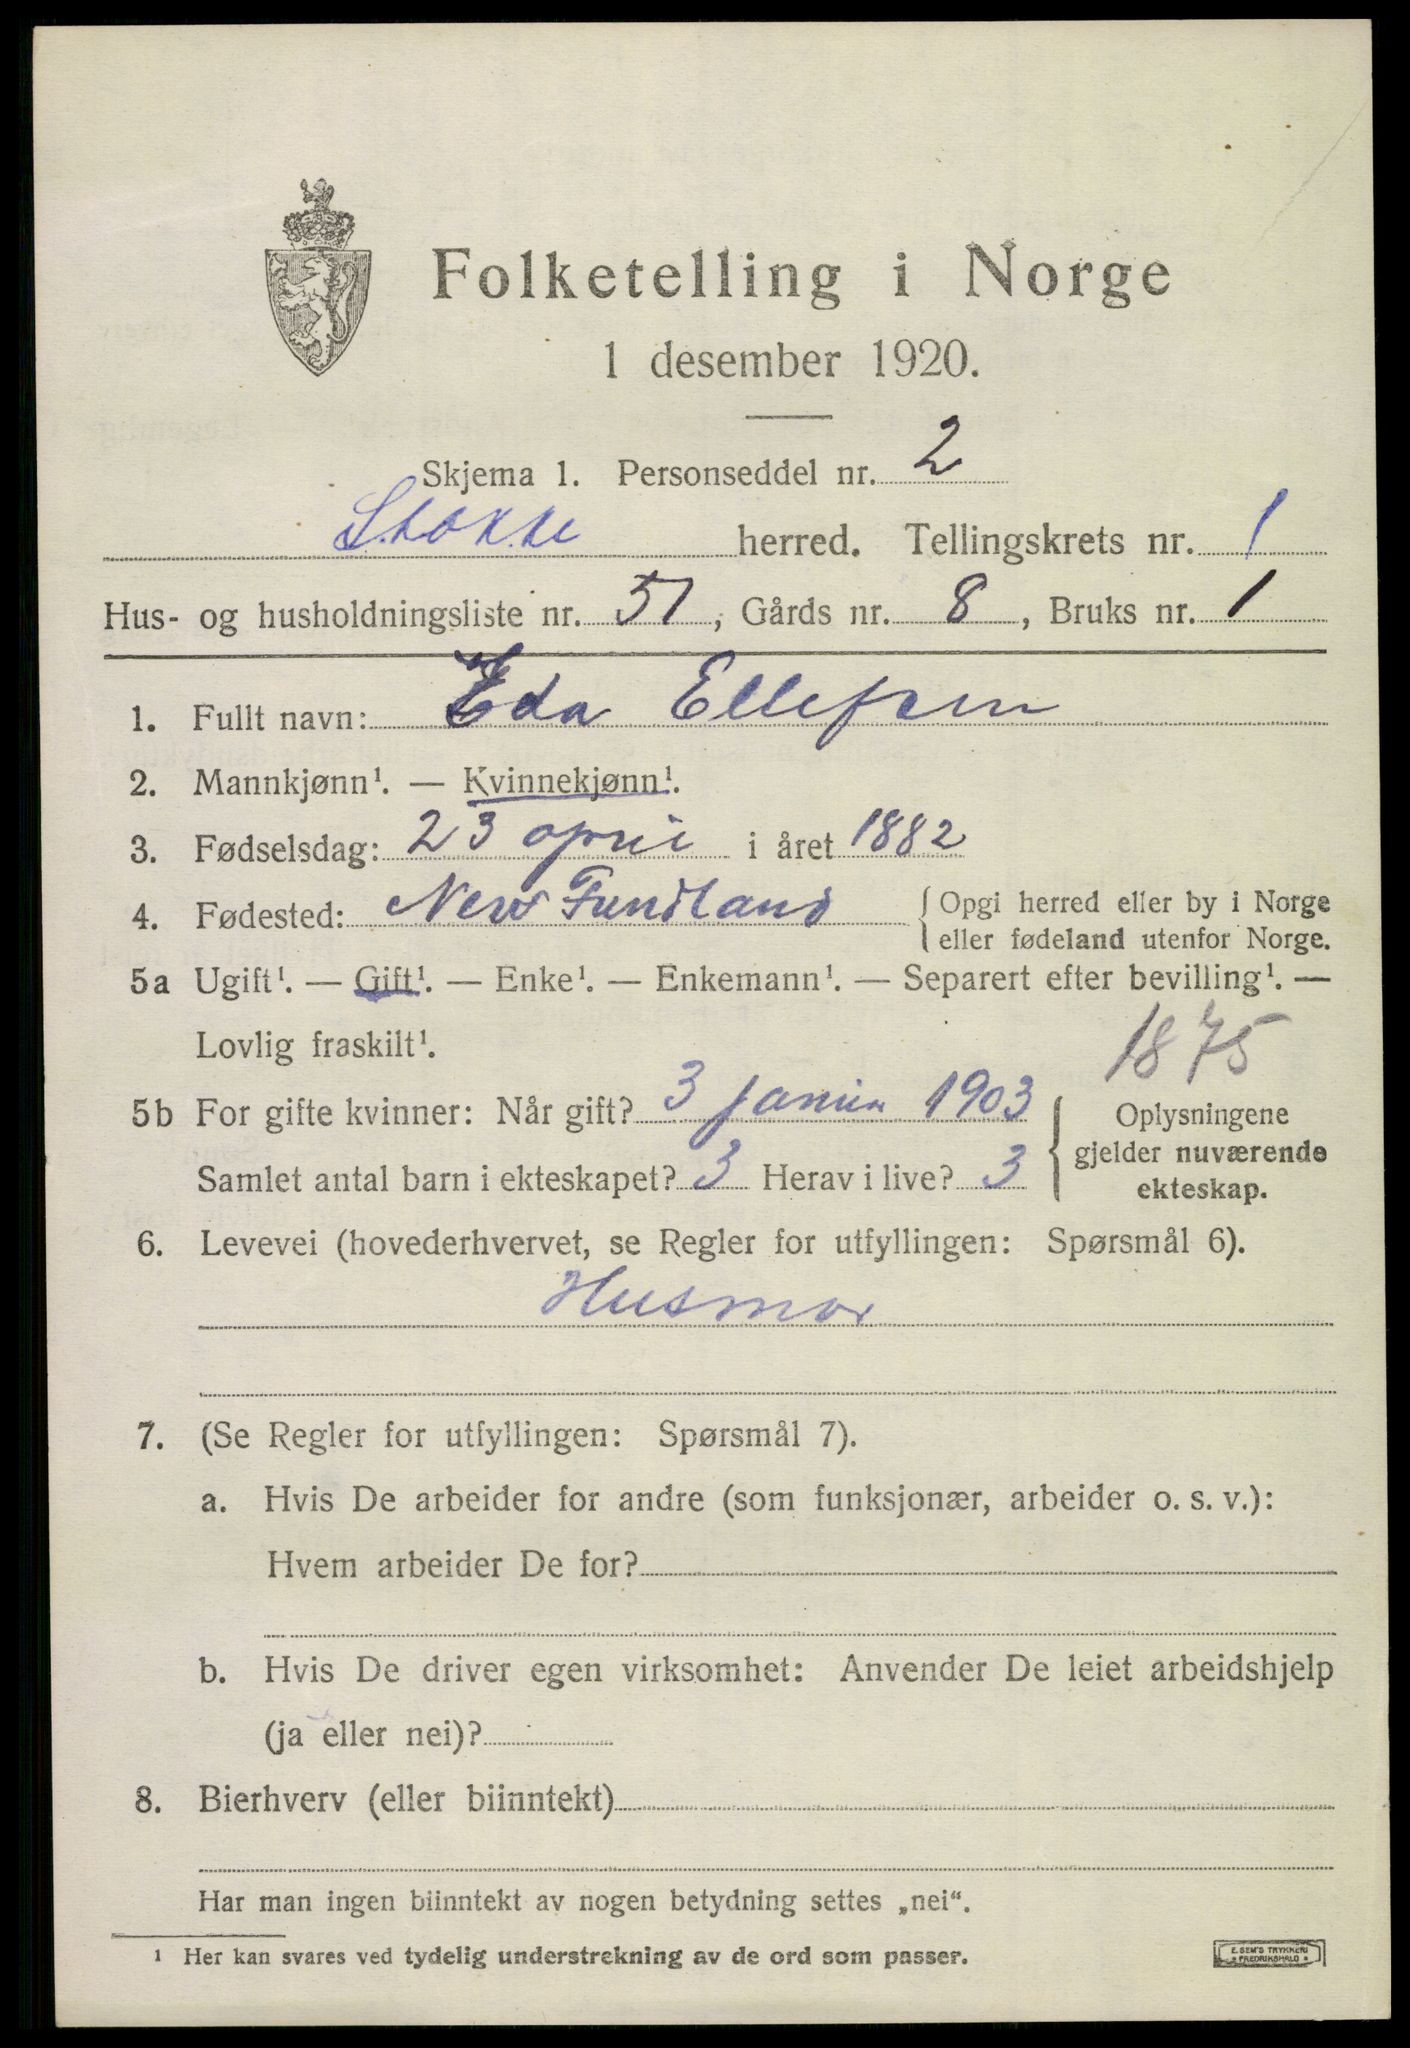 Folketelling i Norge
1 desember 1920.
Skjema 1. Personseddel nr. 2
Stokke herred. Tellingskrets nr. 1
Hus- og husholdningsliste nr. 51, Gårds nr. 8, Bruks nr. 1
1. Fullt navn: Eda Ellefsen
2. Mannkjønn¹. — Kvinnekjønn¹.
3. Fødselsdag: 23 april i året 1882
4. Fødested: New Fundland { Opgi herred eller by i Norge
eller fødeland utenfor Norge.
5a Ugift¹. — Gift¹. — Enke¹. — Enkemann¹. — Separert efter bevilling¹. —
Lovlig fraskilt¹.
1875
5b For gifte kvinner: Når gift? 3 1903
Samlet antal barn i ekteskapet? 3 Herav i live? 3
Oplysningene
gjelder nuværende
ekteskap.
6. Levevei (hovederhvervet, se Regler for utfyllingen: Spørsmål 6).
Husmor
7. (Se Regler for utfyllingen: Spørsmål 7).
a. Hvis De arbeider for andre (som funksjonær, arbeider o. s. v.):
Hvem arbeider De for?
b. Hvis De driver egen virksomhet: Anvender De leiet arbeidshjelp
(ja eller nei)?
8. Bierhverv (eller biinntekt)
Har man ingen biinntekt av nogen betydning settes „nei“.
¹ Her kan svares ved tydelig understrekning av de ord som passer.
E. SEM'S TRYKKERI
FREDRIKSHALD